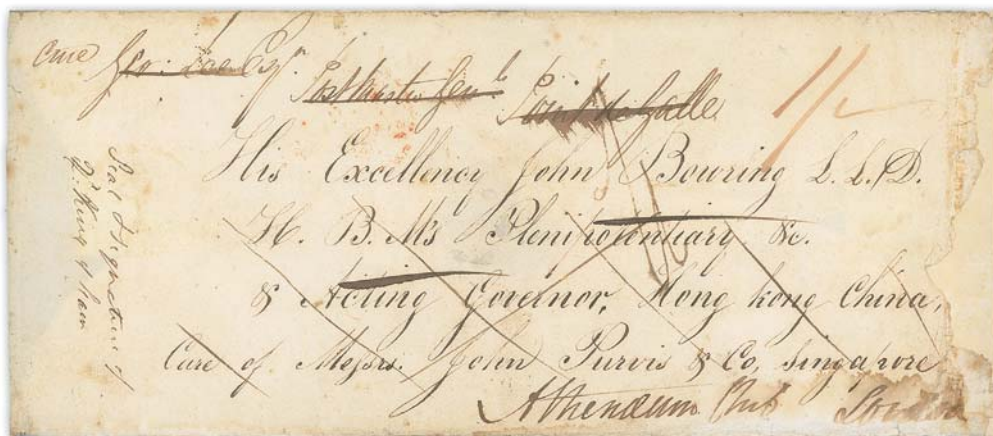 care Geo: Lee Esqr.
Postmaster Genl.
Point de Galle
1/2
His Excellency John Bowring L. L. D.
H. B. M's Plenipotentiary &c.
& Acting Governor, Hong kong China,
Care of Messrs. John Purvis & Co, Singapore
Athenæum Club London
Seal & Signature of
2d. King of Siam